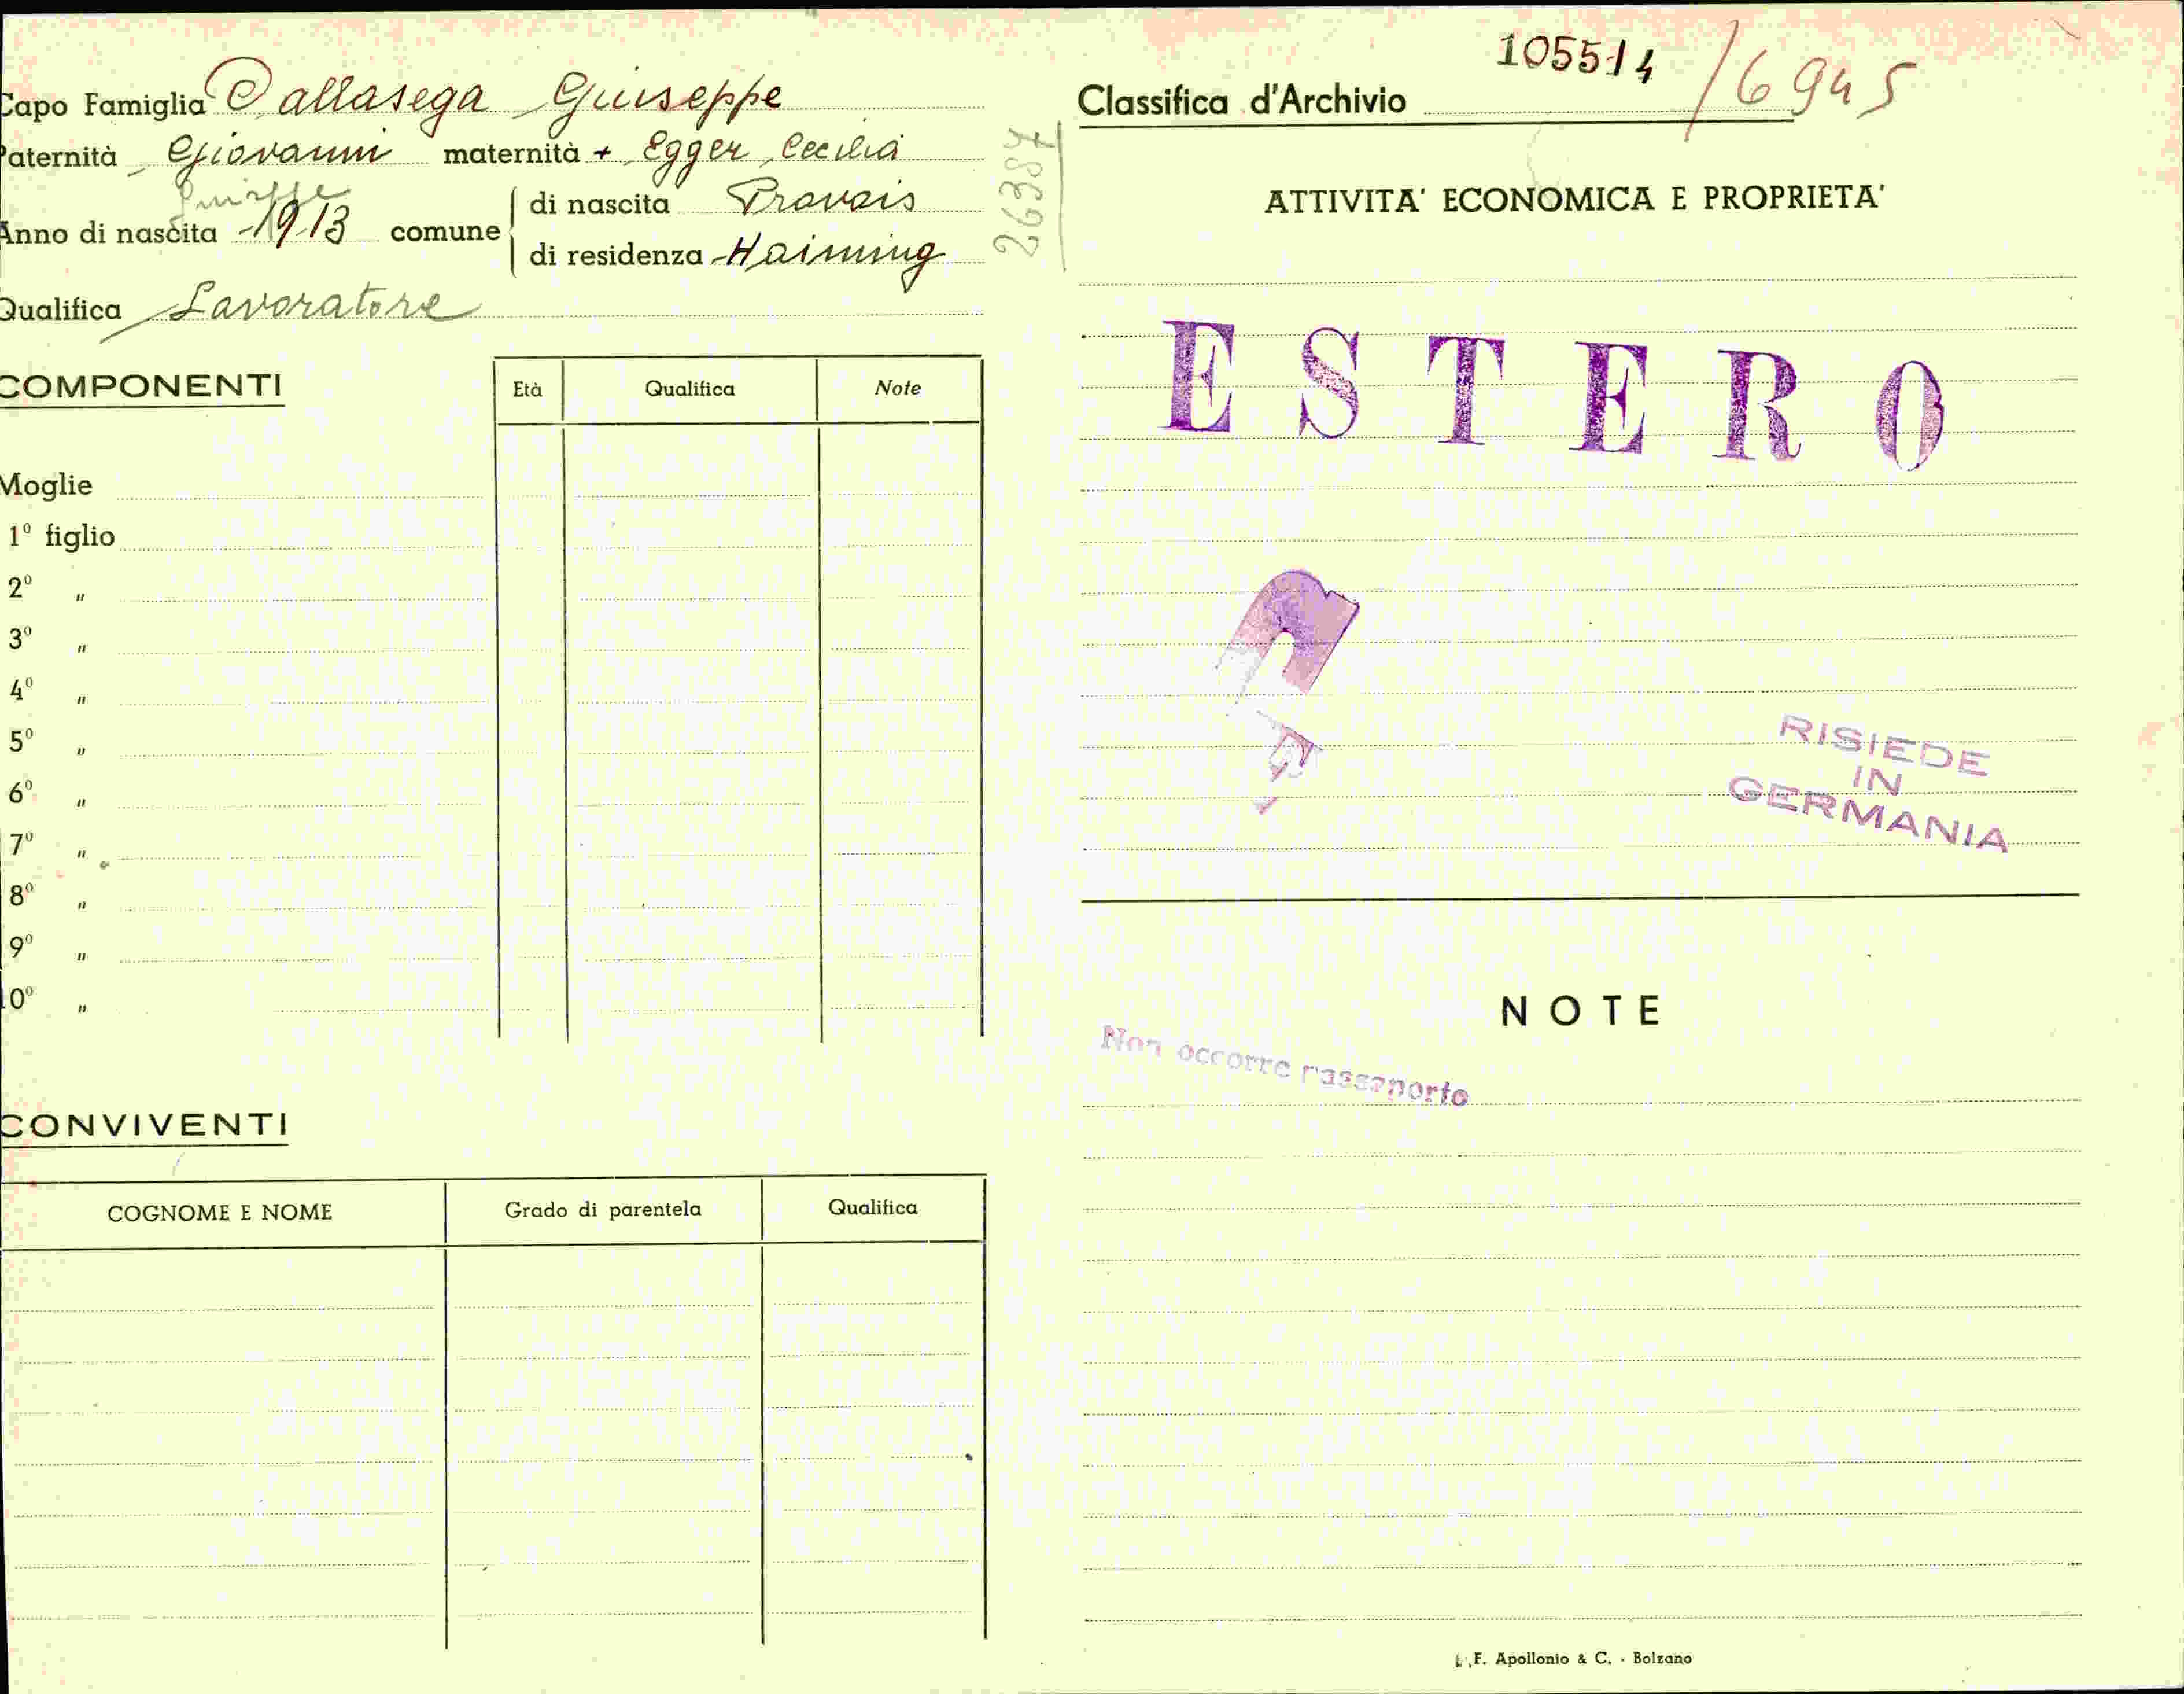 Capo Famiglia Dallasega Giuseppe
Paternità Giovanni maternità + Egger Cecilia
Giuseppe
Anno di nascita 1913 comune di nascita Proveis
di residenza Haiming
Qualifica Lavoratore
26387
COMPONENTI
Età Qualifica Note
Moglie
1º figlio
2º "
3º "
4º "
5º "
6º "
7º "
8º "
9º "
10º "
CONVIVENTI
COGNOME E NOME Grado di parentela Qualifica
105514 / 6945
Classifica d'Archivio
ATTIVITA' ECONOMICA E PROPRIETA'
ESTERO
RISIEDE
IN
GERMANIA
NOTE
Non occorre passaporto
F. Apollonio & C. - Bolzano